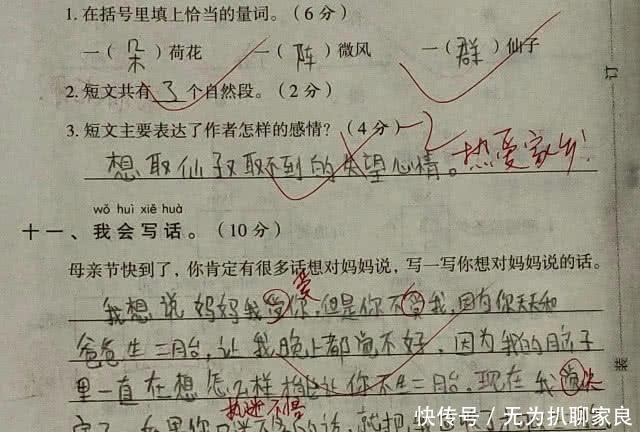 1.在括号里填上恰当的量词。(6分)
一(朵)荷花 一(阵)微风 一(群)仙子
2.短文共有 了 个自然段。(2分)
3.短文主要表达了作者怎样的感情?(4分)-2
想取仙子取不到的失望心情。热爱家乡!
wǒ huì xiě huà
十一、我会写话。(10分)
母亲节快到了,你肯定有很多话想对妈妈说,写一写你想对妈妈说的话。
爱
我想说妈妈我受你,但是你不受我,因为你天天和
爸爸生二胎,让我晚上都觉不好,因为我的脑子
里一直在想怎么样才让你不生二胎,现在我决
执迷不悟
定了,如果你
快传号/无为扒聊家良
订
装